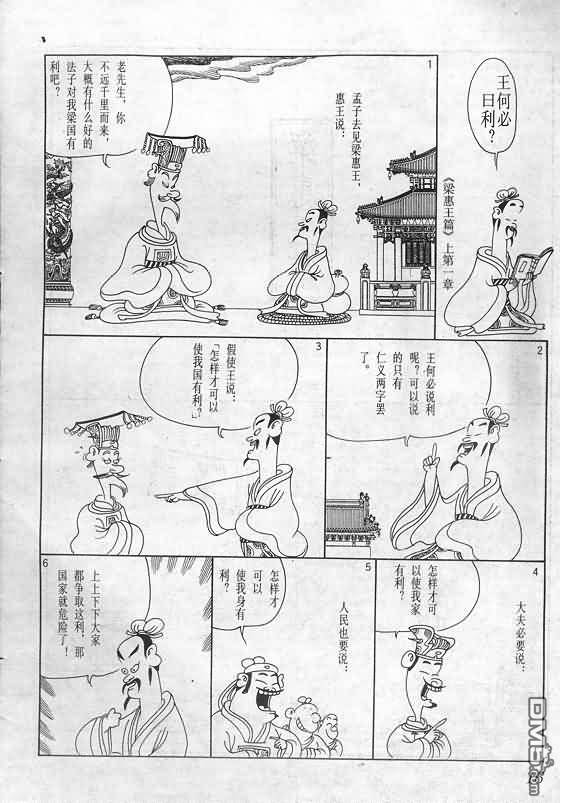 王何必
曰利？
《梁惠王篇》上第一章
1
孟子去见梁惠王，
惠王说：
老先生，你
不远千里而来，
大概有什么好的
法子对我梁国有
利吧？
2
王何必说利
呢？可以说
的只有
仁义两字罢
了。
3
假使王说：
「怎样才可以
使我国有利？」
4
大夫必要说：
怎样才可
以使我家
有利？
5
人民也要说：
怎样才
可以
使我身有
利？
6
上上下下大家
都争取这利，那
国家就危险了！
DM5